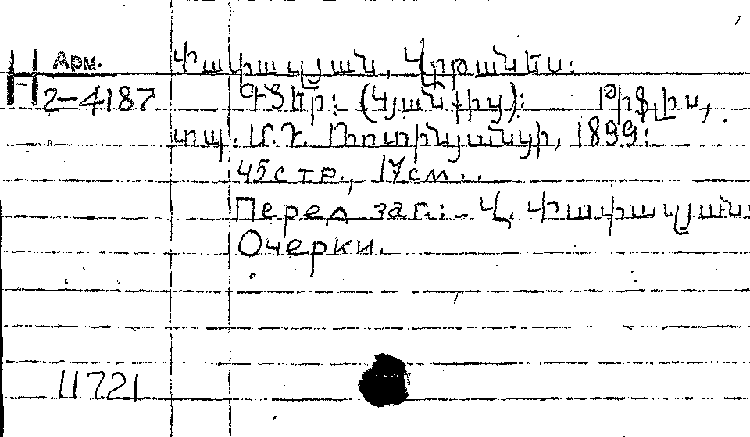 Арм.
Փափազյան, Վրթանես:
Н 2-4187
Գծեր: (Կյանքից): Թիֆլիս,
տպ. Մ. Դ. Ռոտինյանցի, 1899:
45 стр., 17 см..
Перед заг.: Վ. Փափազյան:
Очерки.
11721